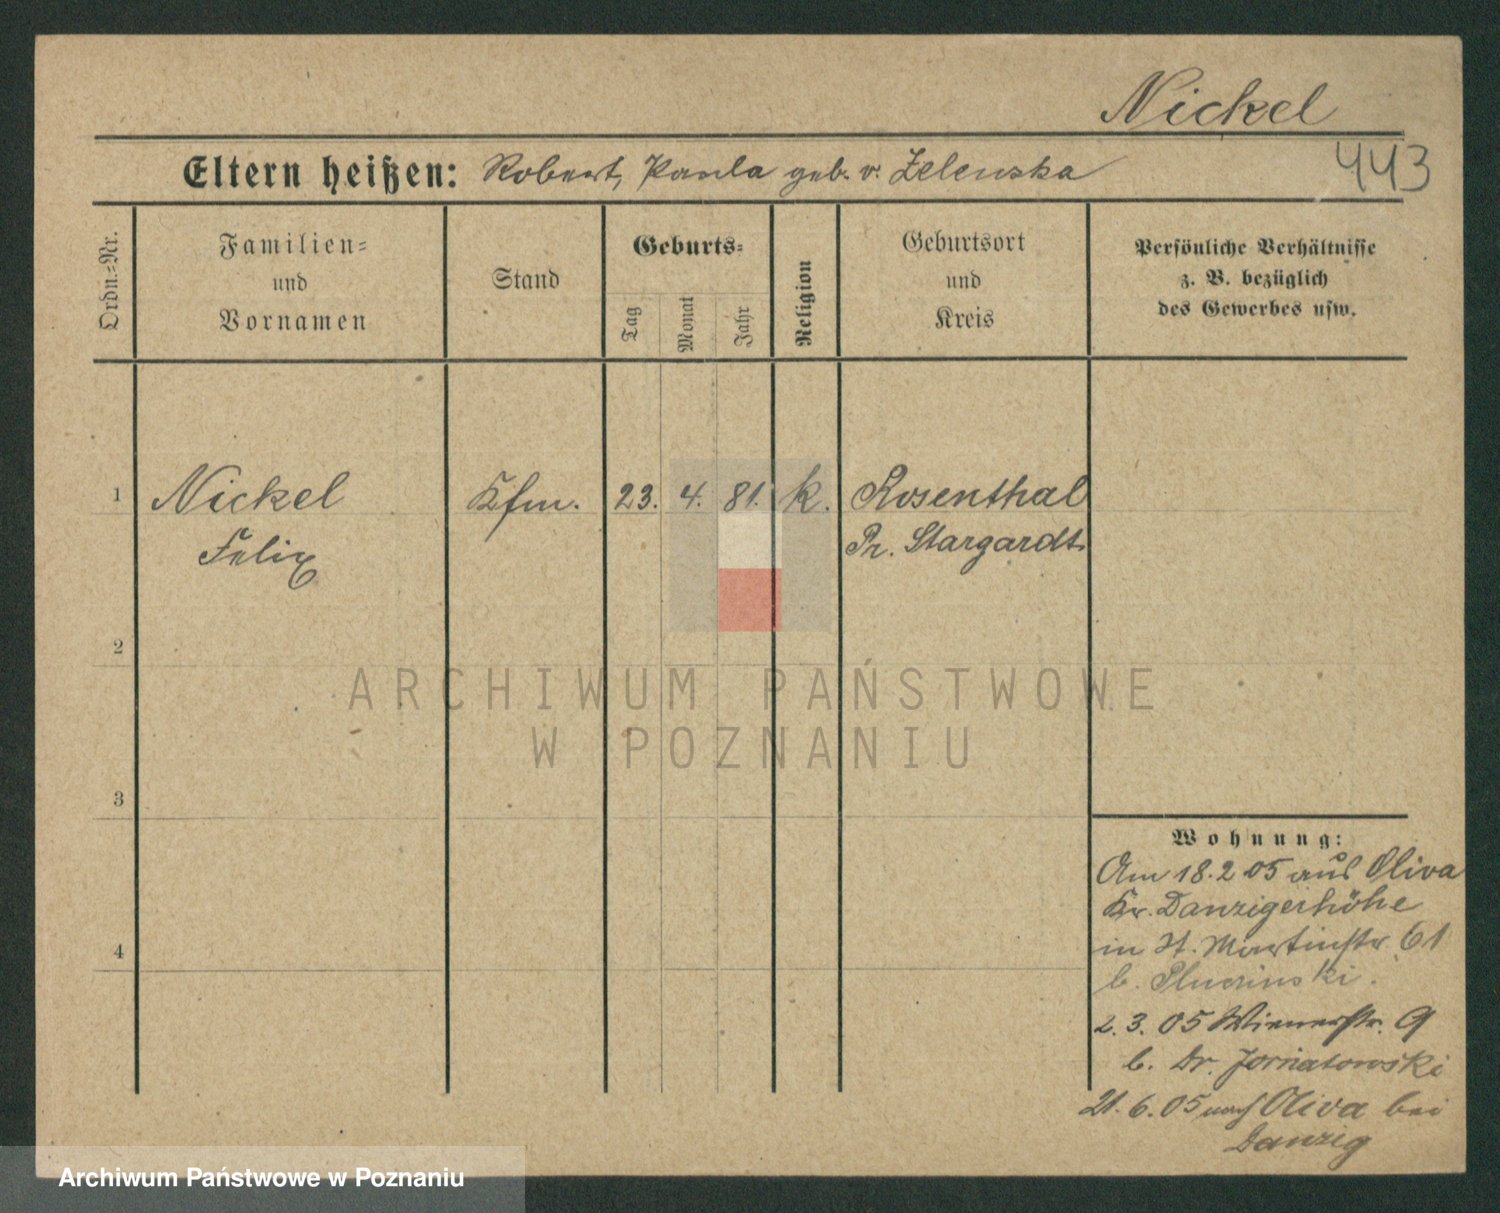 Nickel
443
Eltern heißen: Robert, Paula geb. v. Zelenska
Ordn.-Nr.
Familien-
und
Vornamen
Stand
Geburts-
Tag
Monat
Jahr
Religion
Geburtsort
und
Kreis
Persönliche Verhältnisse
z. B. bezüglich
des Gewerbes usw.
1 Nickel Kfm. 23. 4. 81. k. Rosenthal
Felix Pr. Stargardt
2
3
4
Wohnung:
Am 18.2 05 aus Oliva
Kr. Danzigerhöhe
in St. Martinstr. 61
b.
2.3.05 Wienerstr. 9
b. Dr.
21.6.05 nach Oliva bei
Danzig
ARCHIWUM PAŃSTWOWE
W POZNANIU
Archiwum Państwowe w Poznaniu